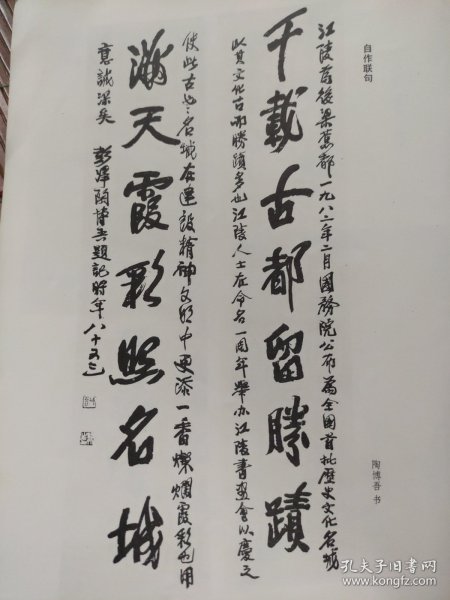 自作联句
江陵前後梁舊都一九八二年二月國務院公布為全國首批歷史文化名城
千載古都留勝蹟
以其文化古而勝蹟多也江陵人士在命名一周年舉办江陵書畫會以慶之
使此古老之名城在建設精神文明中更添一番燦爛霞彩也用
滿天霞彩照名城
意誠深矣 彭澤陶博吾題記時年八十又三
陶博吾 书
孔夫子旧书网
www.kongfz.com